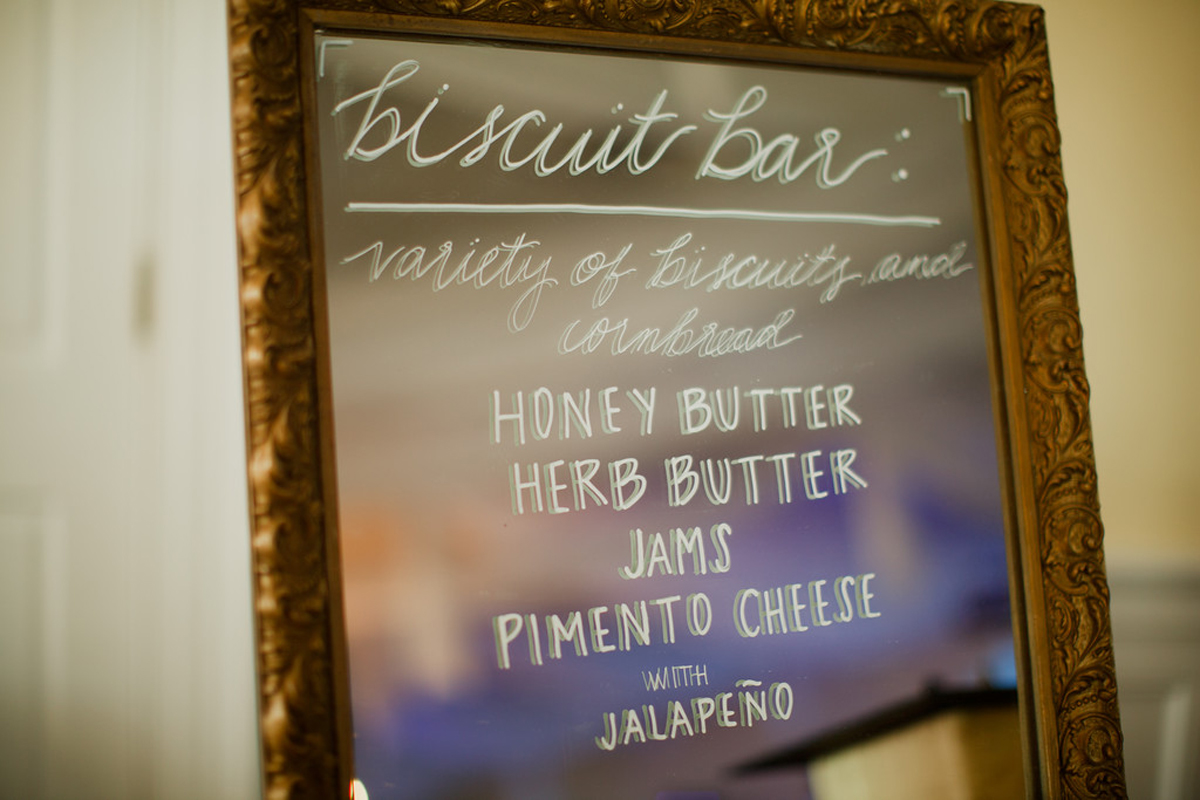 biscuit bar:
variety of biscuits and
cornbread
HONEY BUTTER
HERB BUTTER
JAMS
PIMENTO CHEESE
WITH
JALAPEÑO